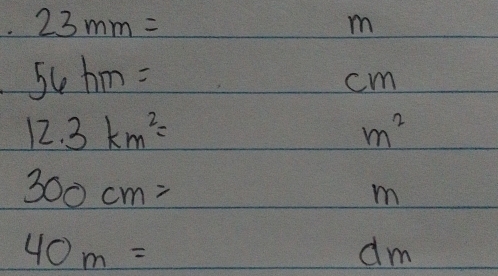 . 23 mm = m
. 56 hm = cm
12.3 km²= m²
300 cm = m
40 m = dm